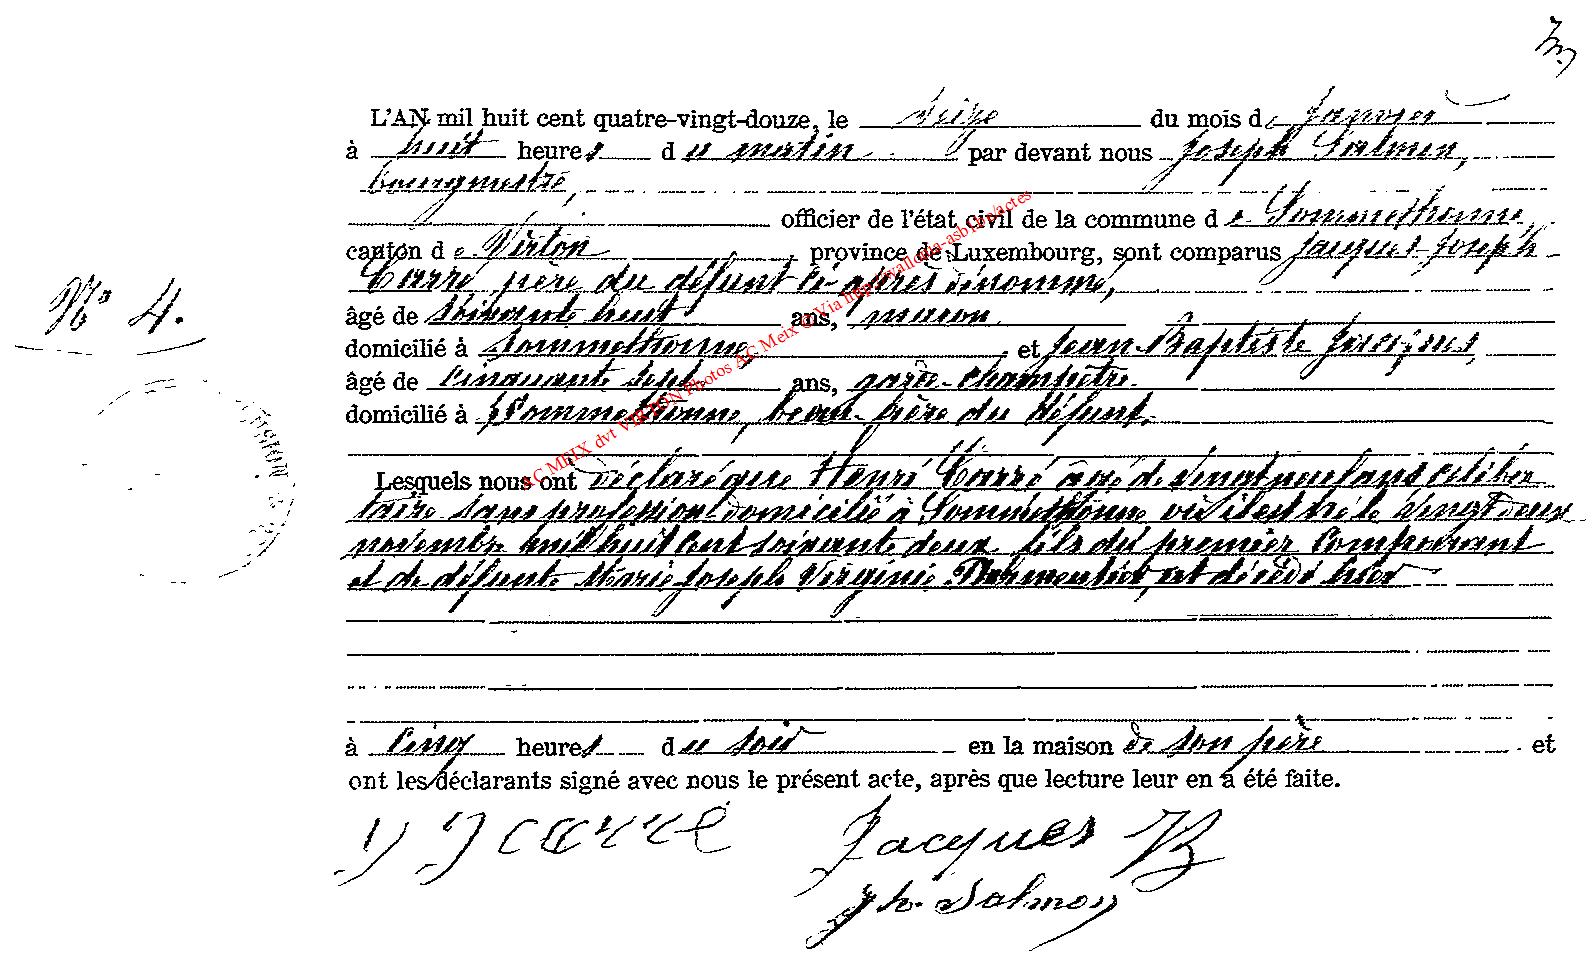 L'AN mil huit cent quatre-vingt-douze, le seize du mois de Janvier
à huit heures du matin par devant nous Joseph Salmon,
bourgmestre,
officier de l'état civil de la commune de Sommethonne,
canton de Virton, province de Luxembourg, sont comparus Jacques-Joseph
Carré père du défunt ci-après dénommé,
N° 4.
âgé de soixante huit ans, macon
domicilié à Sommethonne et Jean-Baptiste Jacques,
âgé de cinquante sept ans, garde-champêtre
domicilié à Sommethonne, beau-frère du défunt.
AC MEIX dvt VIRTON Photos AC Meix © Via http://wallonia-asbl.be/actes
Lesquels nous ont déclaré que Henri Carré âgé de vingt neuf ans céliba
taire sans profession domicilié à Sommethonne où il est né le vingt deux
novembre mil huit cent soixante deux fils du premier comparant
et de défunte Marie Joseph Virginie est décédé hier
à cinq heures du soir en la maison de son père et
ont les déclarants signé avec nous le présent acte, après que lecture leur en a été faite.
J J Carré Jacques JB
Jh. Salmon